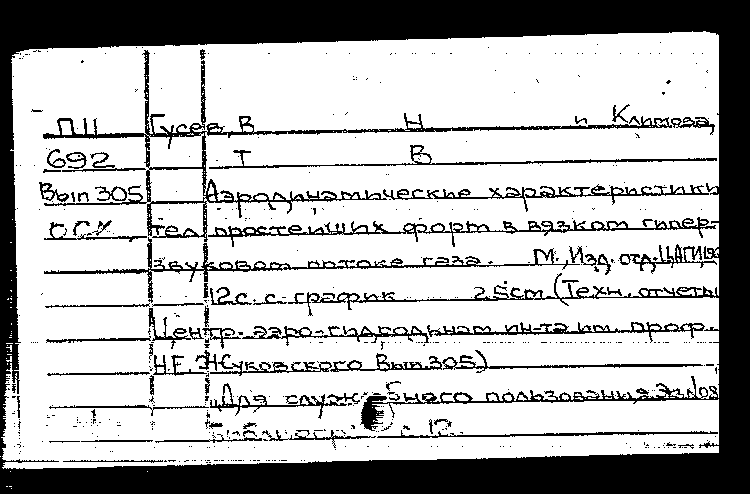 П11 Гусев, В Н и Климова,
692 Т В
Вып 305 Аэродинамические характеристики
ОСХ тел простейших форм в вязком гипер-
звуковом потоке газа. М., Изд. отд. ЦАГИ,
12 с. с график 25 cm (Техн. отчеты
Центр. аэро-гидродинам ин-та им. проф.
Н.Е. Жуковского Вып. 305)
"Для служебного пользования" Экз №08
Библиогр с. 12